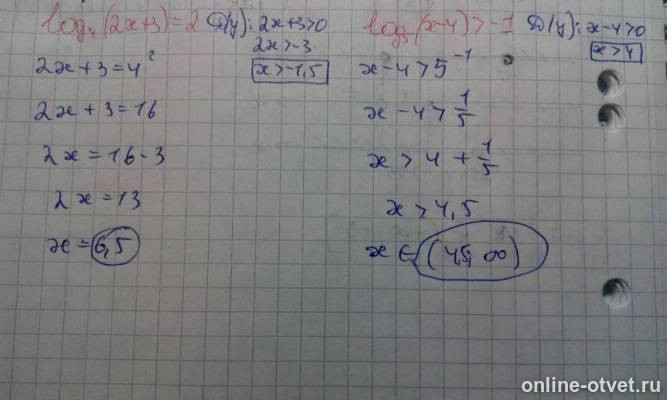 log₄(2x+3)=2 D(y): 2x+3>0
2x>-3
x>-1,5
2x+3=4²
2x+3=16
2x=16-3
2x=13
x=6,5
log₅(x-4)>-1 D(y): x-4>0
x>4
x-4>5⁻¹
x-4>1/5
x>4+1/5
x>4,5
x∈(4,5; ∞)
online-otvet.ru